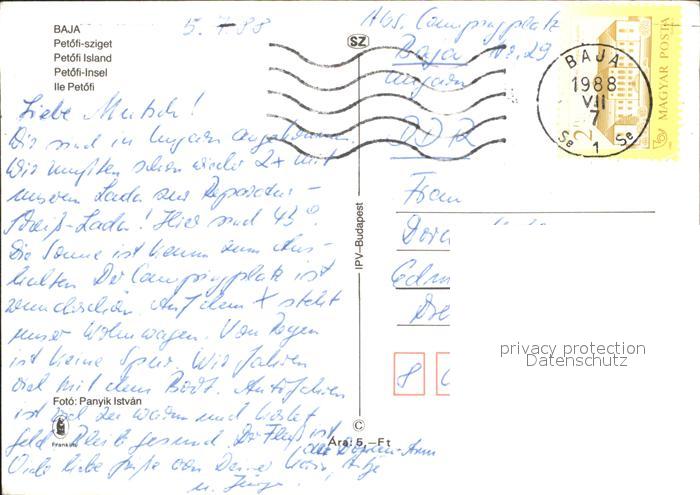 BAJA
Petőfi-sziget
Petőfi Island
Petőfi-Insel
Ile Petőfi
5.7.88
Liebe Mutsch!
Wir sind in Ungarn angekommen.
Wir mußten schon wieder 2x mit
unserem Lada zur Reparatur -
Scheiß-Lada! Hier sind 43°.
Die Sonne ist kaum zum Aus-
halten. Der Campingplatz ist
wunderschön. Auf dem X steht
unser Wohnwagen. Von Regen
ist keine Spur. Wir fahren
viel mit dem Boot. Autofahren
ist viel zu warm und kostet
Geld. Bleib gesund. Der Fluß ist
der Donau-Arm
Viele liebe Grüße von Deiner
u.
Fotó: Panyik István
IPV–Budapest
SZ
Ára: 5,–Ft
Abs. Campingplatz
Baja Nr. 29
Ungarn
DDR
Frau
Dora
Edm
Dre
8
MAGYAR POSTA
2 Ft
BAJA
1988
VII
7
Se 1 Se
privacy protection
Datenschutz